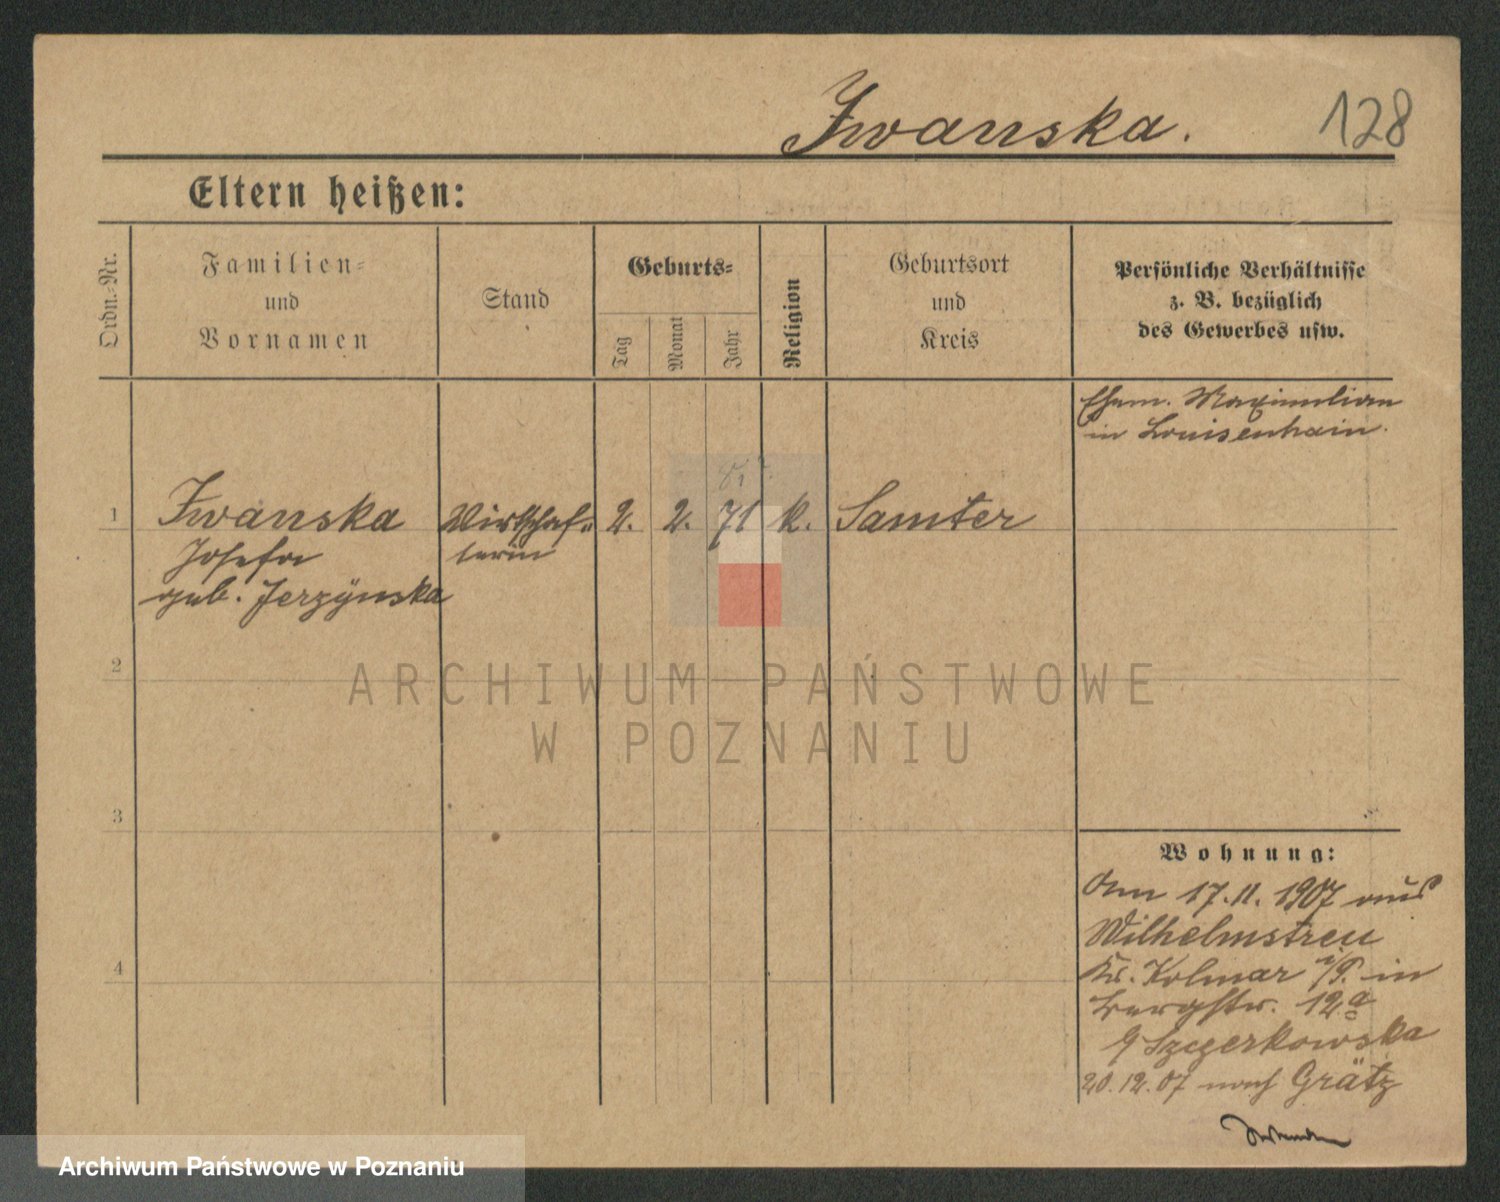 Iwanska.
128
Eltern heißen:
Ordn.-Nr.
Familien-
und
Vornamen
Stand
Geburts-
Tag
Monat
Jahr
Religion
Geburtsort
und
Kreis
Persönliche Verhältnisse
z. B. bezüglich
des Gewerbes usw.
Ehem. Maximilian
in Louisenhain.
1
Iwanska
Josefa
geb. Jerzÿnska
Wirtschaf-
terin
2.
2.
71
k.
Samter
2
3
4
ARCHIWUM PAŃSTWOWE
W POZNANIU
Wohnung:
Am 17.11.1907 aus
Wilhelmstreu
Kr. Kolmar i/P. in
Bergstr. 12a
Szczerkowska
20.12.07 nach Grätz
Archiwum Państwowe w Poznaniu